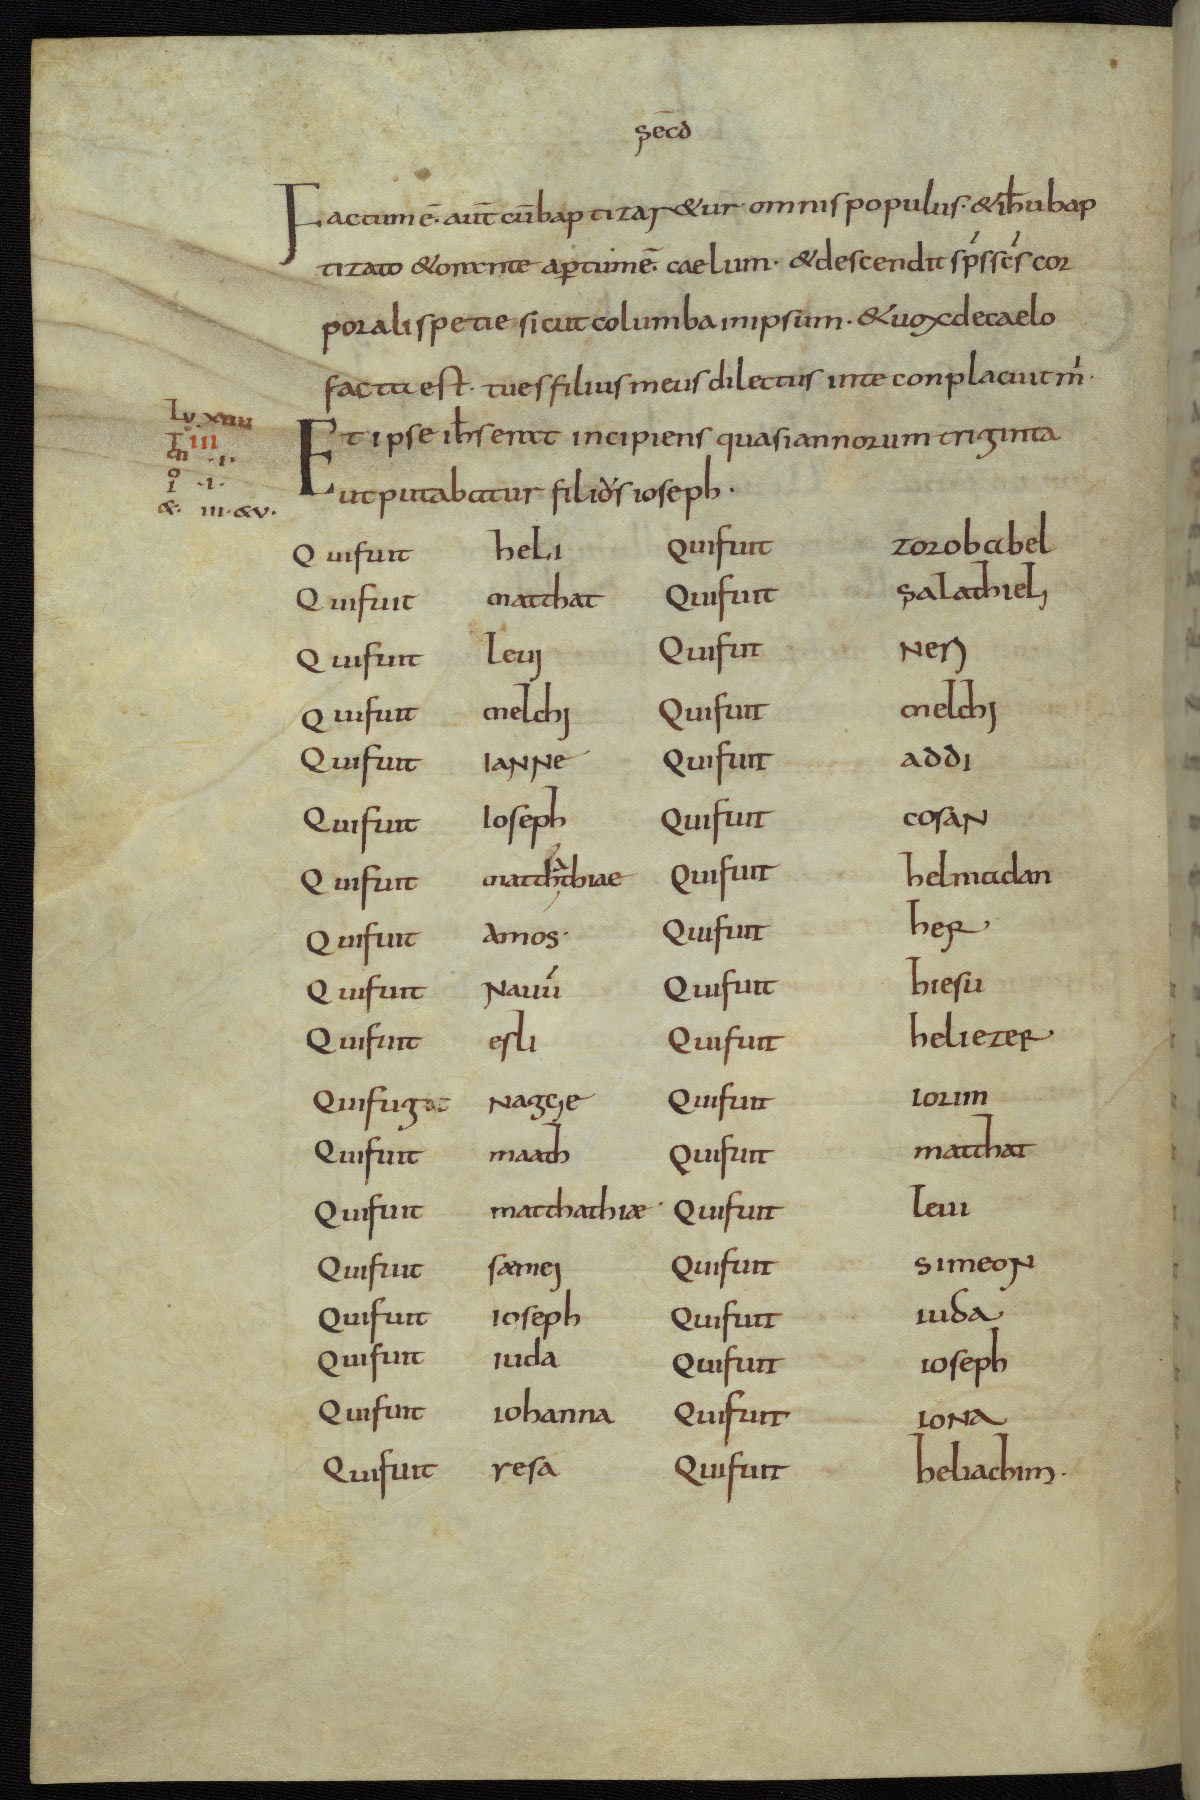 secd̄
Factum ē. aut̄ cū baptizar&ur omnis populus. & ih̄u bap
tizato & orante apertum ē. caelum. & descendit sp̄s sc̄s cor
porali spetie sicut columba in ipsum. & uox de caelo
facta est. tu es filius meus dilectus in te conplacuit m̄.
Et ipse ih̄s erat incipiens quasi annorum triginta
ut putabatur filius ioseph.
Lv. xiiii
T III
m .i.
io .i.
&. iii. & v.
Qui fuit heli Qui fuit zorobabel
Qui fuit matthat Qui fuit salathiel
Qui fuit leuj Qui fuit Neri
Qui fuit melchi Qui fuit melchi
Qui fuit IaNNe Qui fuit addi
Qui fuit Ioseph Qui fuit cosaN
Qui fuit Qui fuit helmadan
Qui fuit amos. Qui fuit her
Qui fuit Nauū Qui fuit hiesu
Qui fuit esli Qui fuit heliezer
Nagge Qui fuit iorim
Qui fuit maath Qui fuit matthat
Qui fuit matthathiae Qui fuit leui
Qui fuit semei Qui fuit simeoN
Qui fuit ioseph Qui fuit iuda
Qui fuit iuda Qui fuit ioseph
Qui fuit iohanna Qui fuit ioNa
Qui fuit resa Qui fuit heliachim.